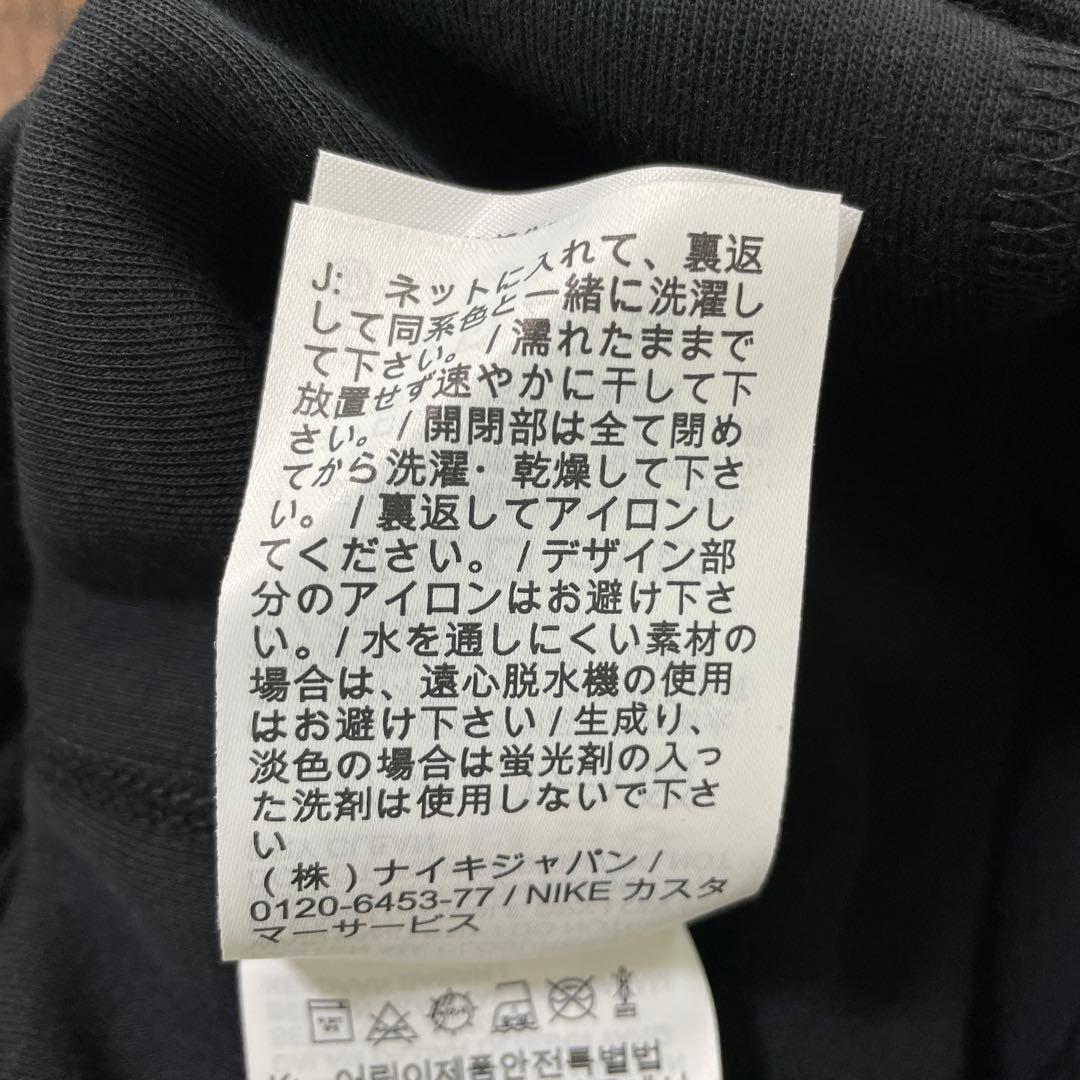 J: ネットに入れて、裏返
して同系色と一緒に洗濯し
て下さい。/濡れたままで
放置せず速やかに干して下
さい。/開閉部は全て閉め
てから洗濯・乾燥して下さ
い。/裏返してアイロンし
てください。/デザイン部
分のアイロンはお避け下さ
い。/水を通しにくい素材の
場合は、遠心脱水機の使用
はお避け下さい/生成り、
淡色の場合は蛍光剤の入っ
た洗剤は使用しないで下さ
い
(株)ナイキジャパン/
0120-6453-77/NIKE カスタ
マーサービス
어린이제품안전특별법